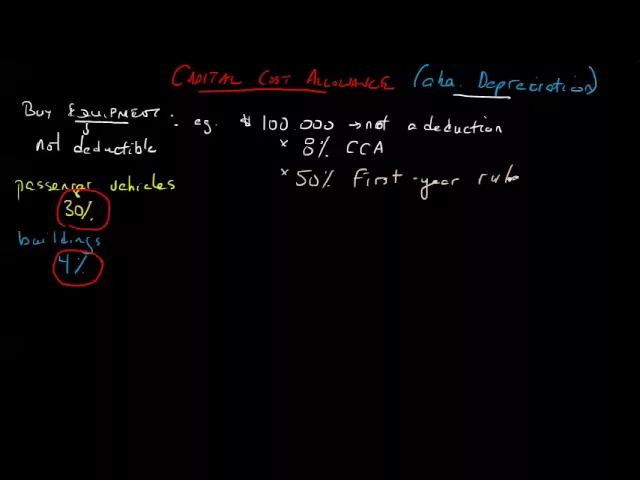 CAPITAL COST ALLOWANCE (aka. Depreciation)
Buy EQUIPMENT: eg. $100.000 → not a deduction
not deductible × 8% CCA
passenger vehicles × 50% First-year rule
30%
buildings
4%